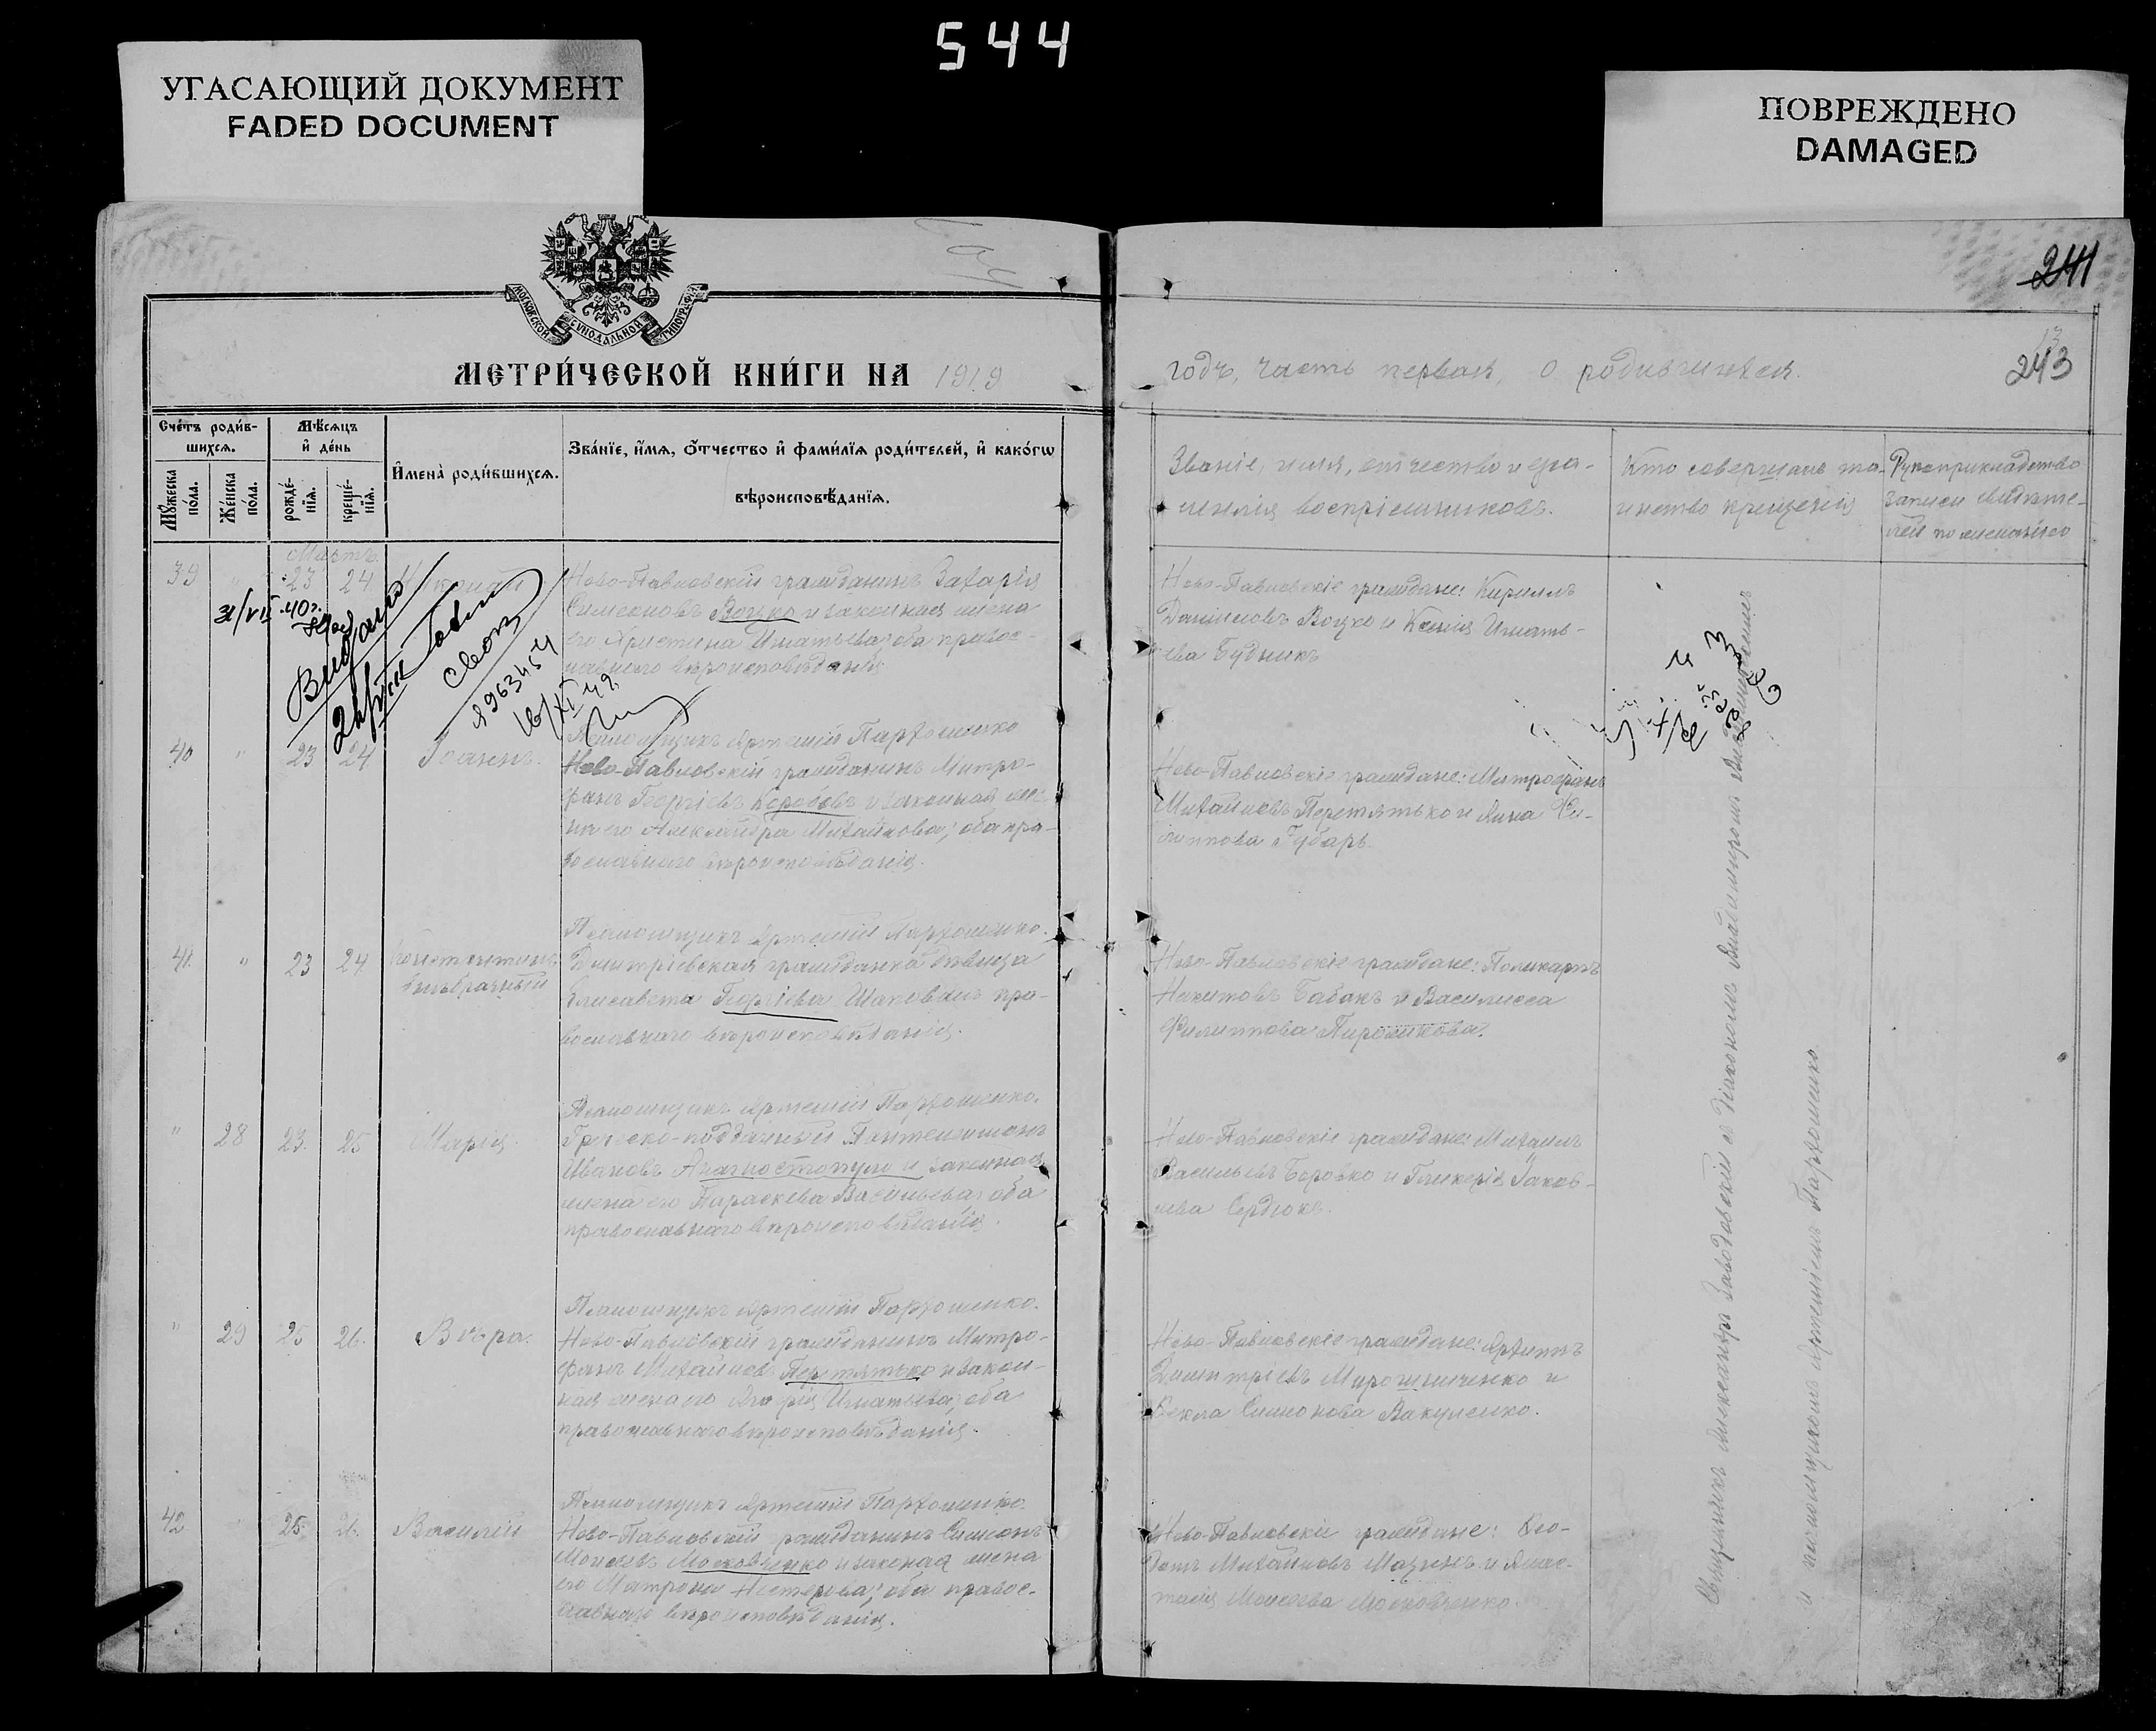 544
УГАСАЮЩИЙ ДОКУМЕНТ
FADED DOCUMENT
ПОВРЕЖДЕНО
DAMAGED
241
243
МОСКОВСКОЙ СѴНОДАЛЬНОЙ ТИПОГРАФІИ
МЕТРИ́ЧЕСКОЙ КНИ́ГИ НА 1919
годъ, часть первая, о родившихся.
Сче́тъ роди́в-
шихсѧ.
Мꙋ́жеска по́ла.
Же́нска по́ла.
Мѣ́сѧцъ
и҆ де́нь
рожде́-
нїѧ.
креще́-
нїѧ.
И҆мена̀ роди́вшихсѧ.
Зва́нїе, и҆́мѧ, ѻ҆́тчество и҆ фами́лїѧ роди́телей, и҆ како́гѡ
вѣроисповѣ́данїѧ.
Званіе, имя, отчество и фа-
милія воспріемниковъ.
Кто совершалъ та-
инство крещенія
Рукоприкладство
записи свидѣте-
лей по желанію
Мартъ
39 " 23 24
Ново-Павловскій гражданинъ Захарія
Симеоновъ Воцко и законная жена
его Христина Игнатьева; оба правос-
лавнаго вѣроисповѣданія
Ново-Павловскіе граждане: Кириллъ
Данииловъ Воцко и Ксенія Игнать-
ева Будникъ
31/VII 40 г.
Выдано
16/XI 49.
Псаломщикъ Артемій Пархоменко
40 " 23 24 Іоаннъ.
Ново-Павловскій гражданинъ Митро-
фанъ Георгіевъ Коробовъ и законная же-
на его Александра Михайлова; оба пра-
вославнаго вѣроисповѣданія.
Ново-Павловскіе граждане: Митрофанъ
Михайловъ Перетятько и Анна Фи-
липпова Губарь.
Псаломщикъ Артемій Пархоменко.
41. " 23 24 Константинъ
внѣбрачный
Дмитріевская гражданка дѣвица
Елисавета Георгіева Шаповалъ пра-
вославнаго вѣроисповѣданія.
Ново-Павловскіе граждане: Поликарпъ
Никитовъ Бабакъ и Василисса
Филиппова Пирожкова.
Псаломщикъ Артемій Пархоменко.
" 28 23. 25 Марія.
Греческо-подданный Пантелимонъ
Ивановъ Анагностопуло и законная
жена его Параскева Васильева; оба
православнаго вѣроисповѣданія.
Ново-Павловскіе граждане: Михаилъ
Васильевъ Боровко и Гликерія Іаков-
лева Сердюкъ.
Псаломщикъ Артемій Пархоменко.
" 29 25 26. Вѣра.
Ново-Павловскій гражданинъ Митро-
фанъ Михайловъ Перетятько и закон-
ная жена его Агафія Игнатьева; оба
православнаго вѣроисповѣданія.
Ново-Павловскіе граждане: Архиппъ
Димитріевъ Мирошниченко и
Ѳекла Симонова Вакуленко.
Псаломщикъ Артемій Пархоменко.
42 25. 26. Василій
Ново-Павловскій гражданинъ Симонъ
Моисеевъ Московченко и законная жена
его Матрона Нестерова; оба правос-
лавнаго вѣроисповѣданія.
Ново-Павловскіе граждане: Ѳео-
дотъ Михайловъ Мазинъ и Анас-
тасія Моисеева Московченко.
Священникъ Александръ Заводовскій съ діакономъ Владимиромъ
и псаломщикомъ Артеміемъ Пархоменко.